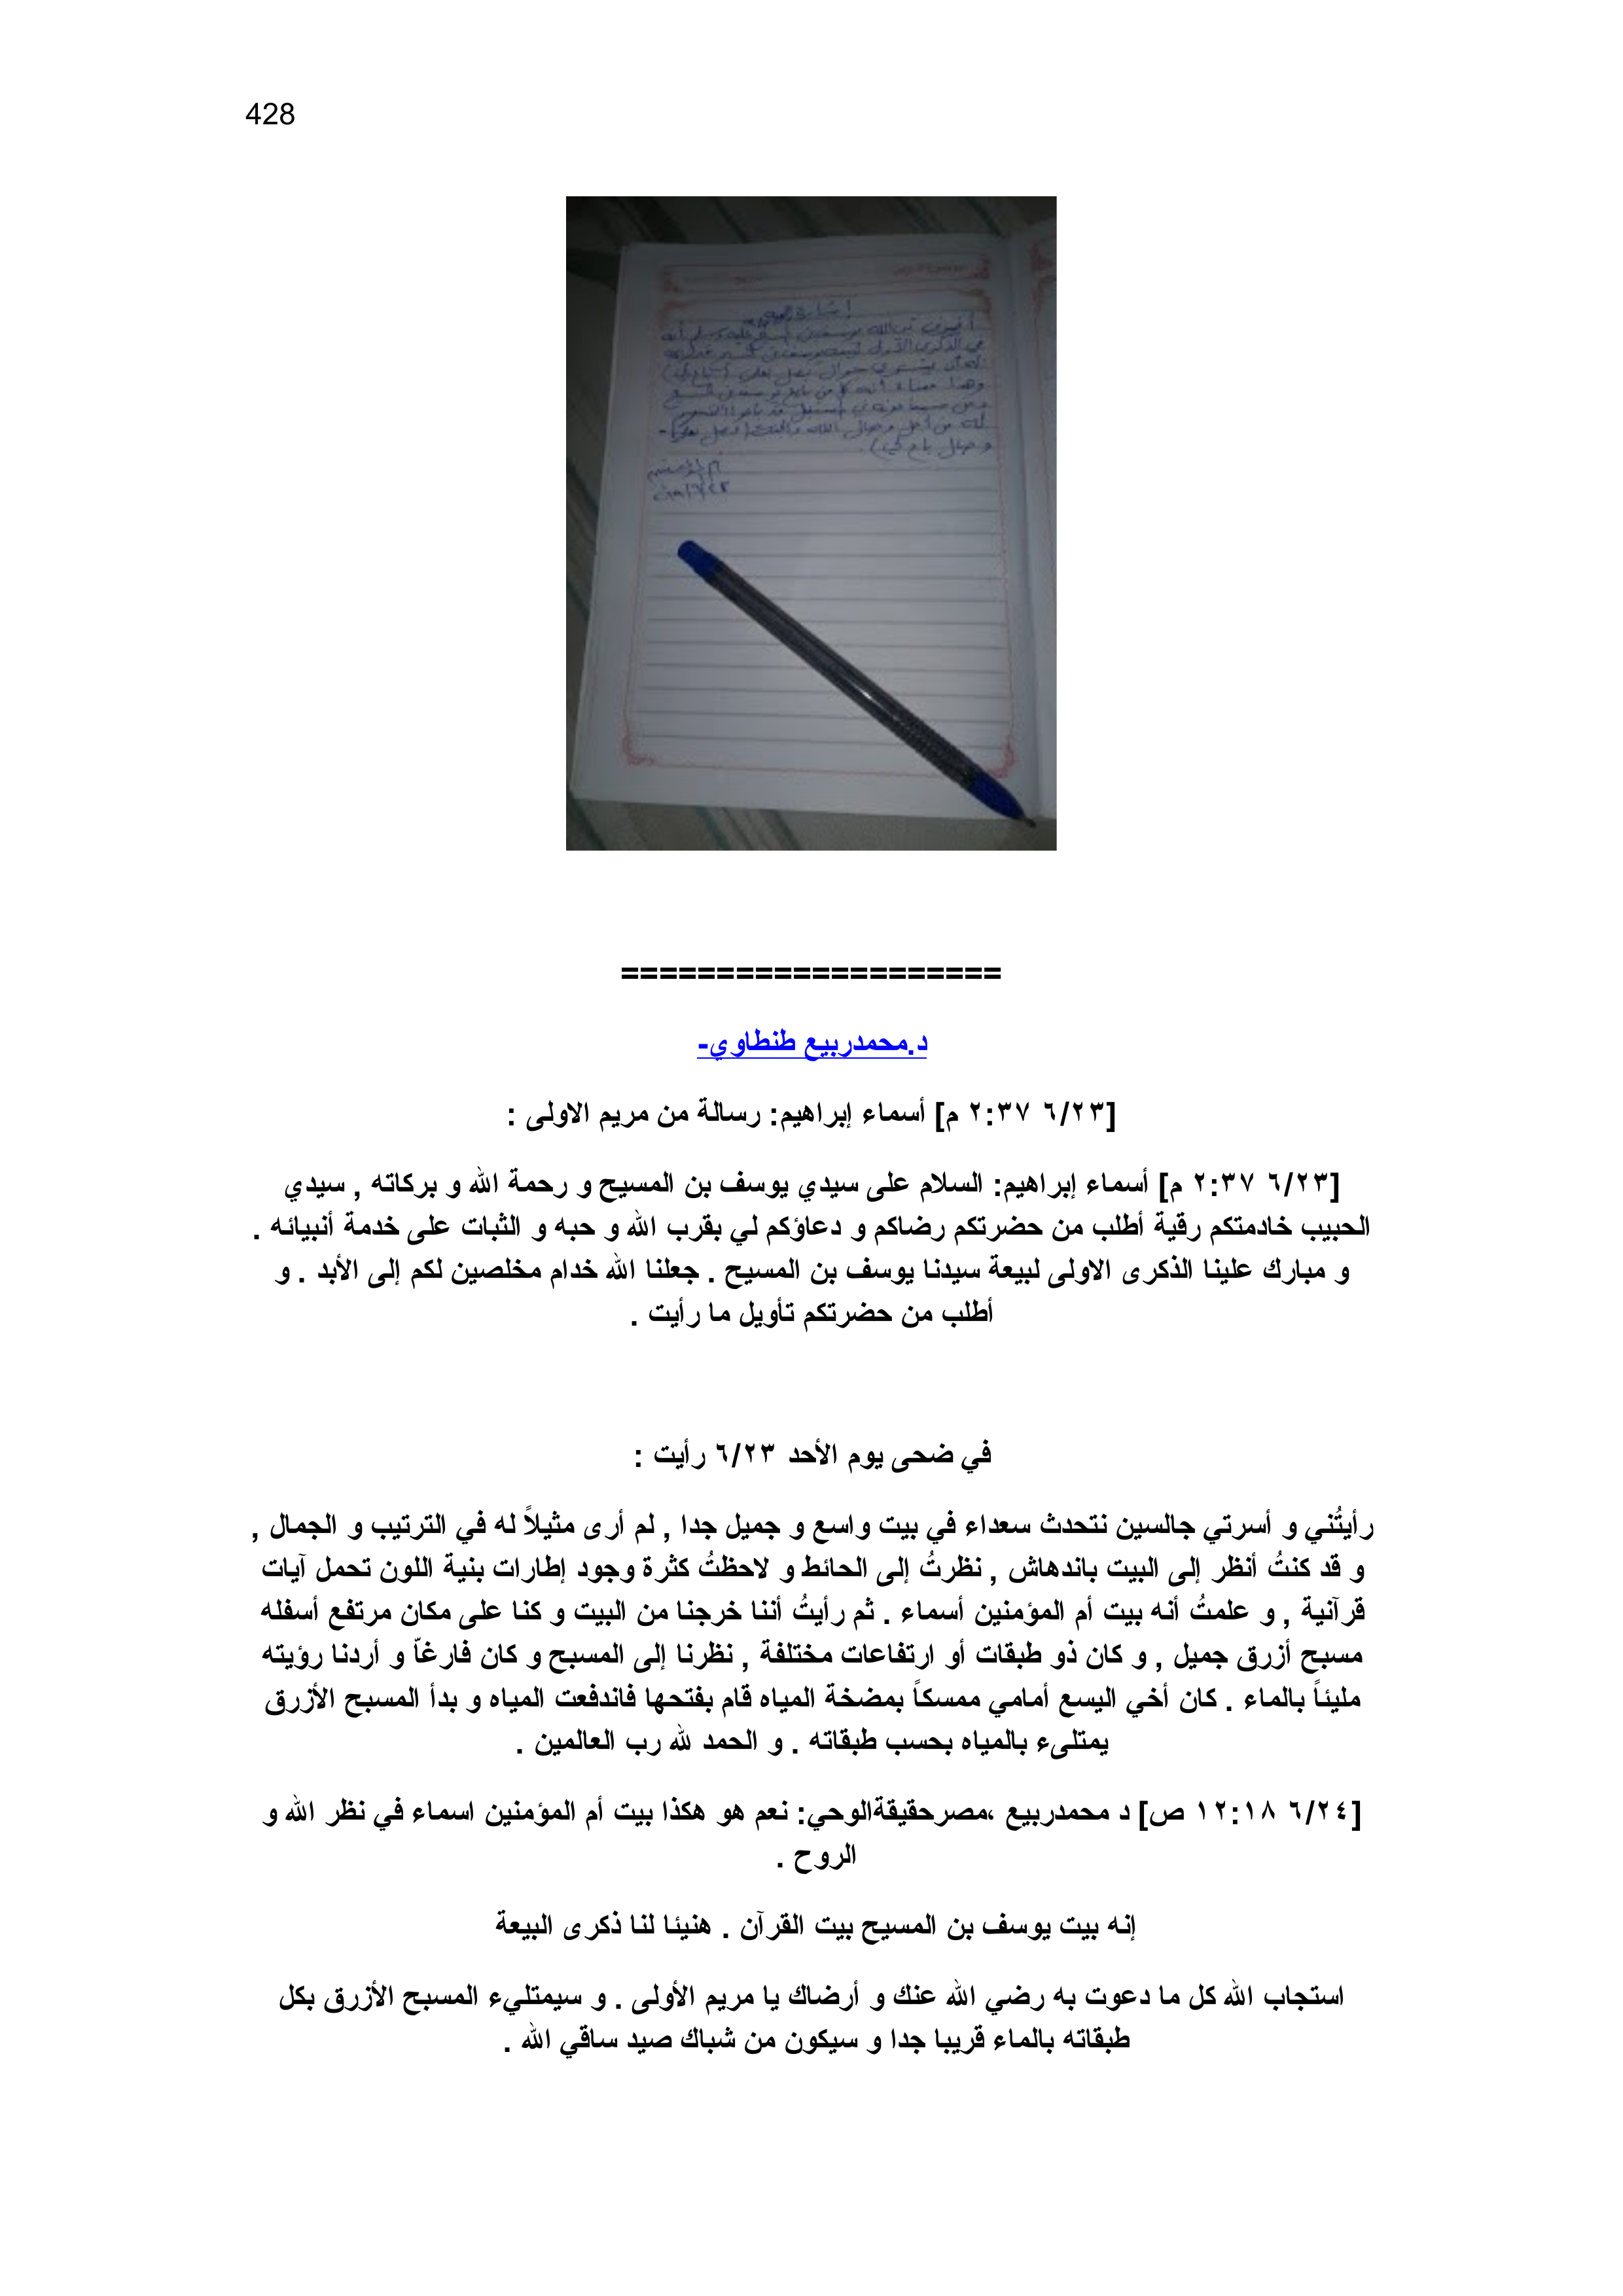 428
إشارة
أخبرني نبي الله يوسف بن المسيح عليه وسلم أنه
في الذكرى الأولى لبيعة يوسف بن المسيح
وهذا معناه أنه كل من بايع يوسف بن المسيح
أم المؤمنين
====================
د.محمدربيع طنطاوي-
[٦/٢٣ ٢:٣٧ م] أسماء إبراهيم: رسالة من مريم الاولى :
[٦/٢٣ ٢:٣٧ م] أسماء إبراهيم: السلام على سيدي يوسف بن المسيح و رحمة الله و بركاته , سيدي
الحبيب خادمتكم رقية أطلب من حضرتكم رضاكم و دعاؤكم لي بقرب الله و حبه و الثبات على خدمة أنبيائه .
و مبارك علينا الذكرى الاولى لبيعة سيدنا يوسف بن المسيح . جعلنا الله خدام مخلصين لكم إلى الأبد . و
أطلب من حضرتكم تأويل ما رأيت .
في ضحى يوم الأحد ٦/٢٣ رأيت :
رأيتُني و أسرتي جالسين نتحدث سعداء في بيت واسع و جميل جدا , لم أرى مثيلاً له في الترتيب و الجمال ,
و قد كنتُ أنظر إلى البيت باندهاش , نظرتُ إلى الحائط و لاحظتُ كثرة وجود إطارات بنية اللون تحمل آيات
قرآنية , و علمتُ أنه بيت أم المؤمنين أسماء . ثم رأيتُ أننا خرجنا من البيت و كنا على مكان مرتفع أسفله
مسبح أزرق جميل , و كان ذو طبقات أو ارتفاعات مختلفة , نظرنا إلى المسبح و كان فارغاّ و أردنا رؤيته
مليئاً بالماء . كان أخي اليسع أمامي ممسكاً بمضخة المياه قام بفتحها فاندفعت المياه و بدأ المسبح الأزرق
يمتلىء بالمياه بحسب طبقاته . و الحمد لله رب العالمين .
[٦/٢٤ ١٢:١٨ ص] د محمدربيع ،مصرحقيقةالوحي: نعم هو هكذا بيت أم المؤمنين اسماء في نظر الله و
الروح .
إنه بيت يوسف بن المسيح بيت القرآن . هنيئا لنا ذكرى البيعة
استجاب الله كل ما دعوت به رضي الله عنك و أرضاك يا مريم الأولى . و سيمتليء المسبح الأزرق بكل
طبقاته بالماء قريبا جدا و سيكون من شباك صيد ساقي الله .